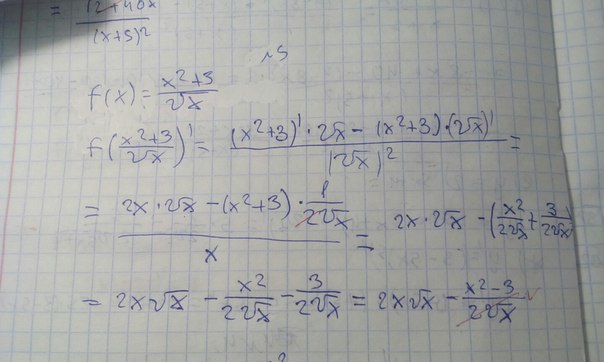 = (2+40x / (x+5)²
~5
f(x) = x²+3 / √x
f(x²+3 / √x)' = (x²+3)' · √x - (x²+3) · (√x)' / (√x)² =
= 2x · √x - (x²+3) · 1/2√x / x = 2x · √x - (x²/2√x + 3/2√x)
= 2x√x - x²/2√x - 3/2√x = 2x√x - x²-3/2√x